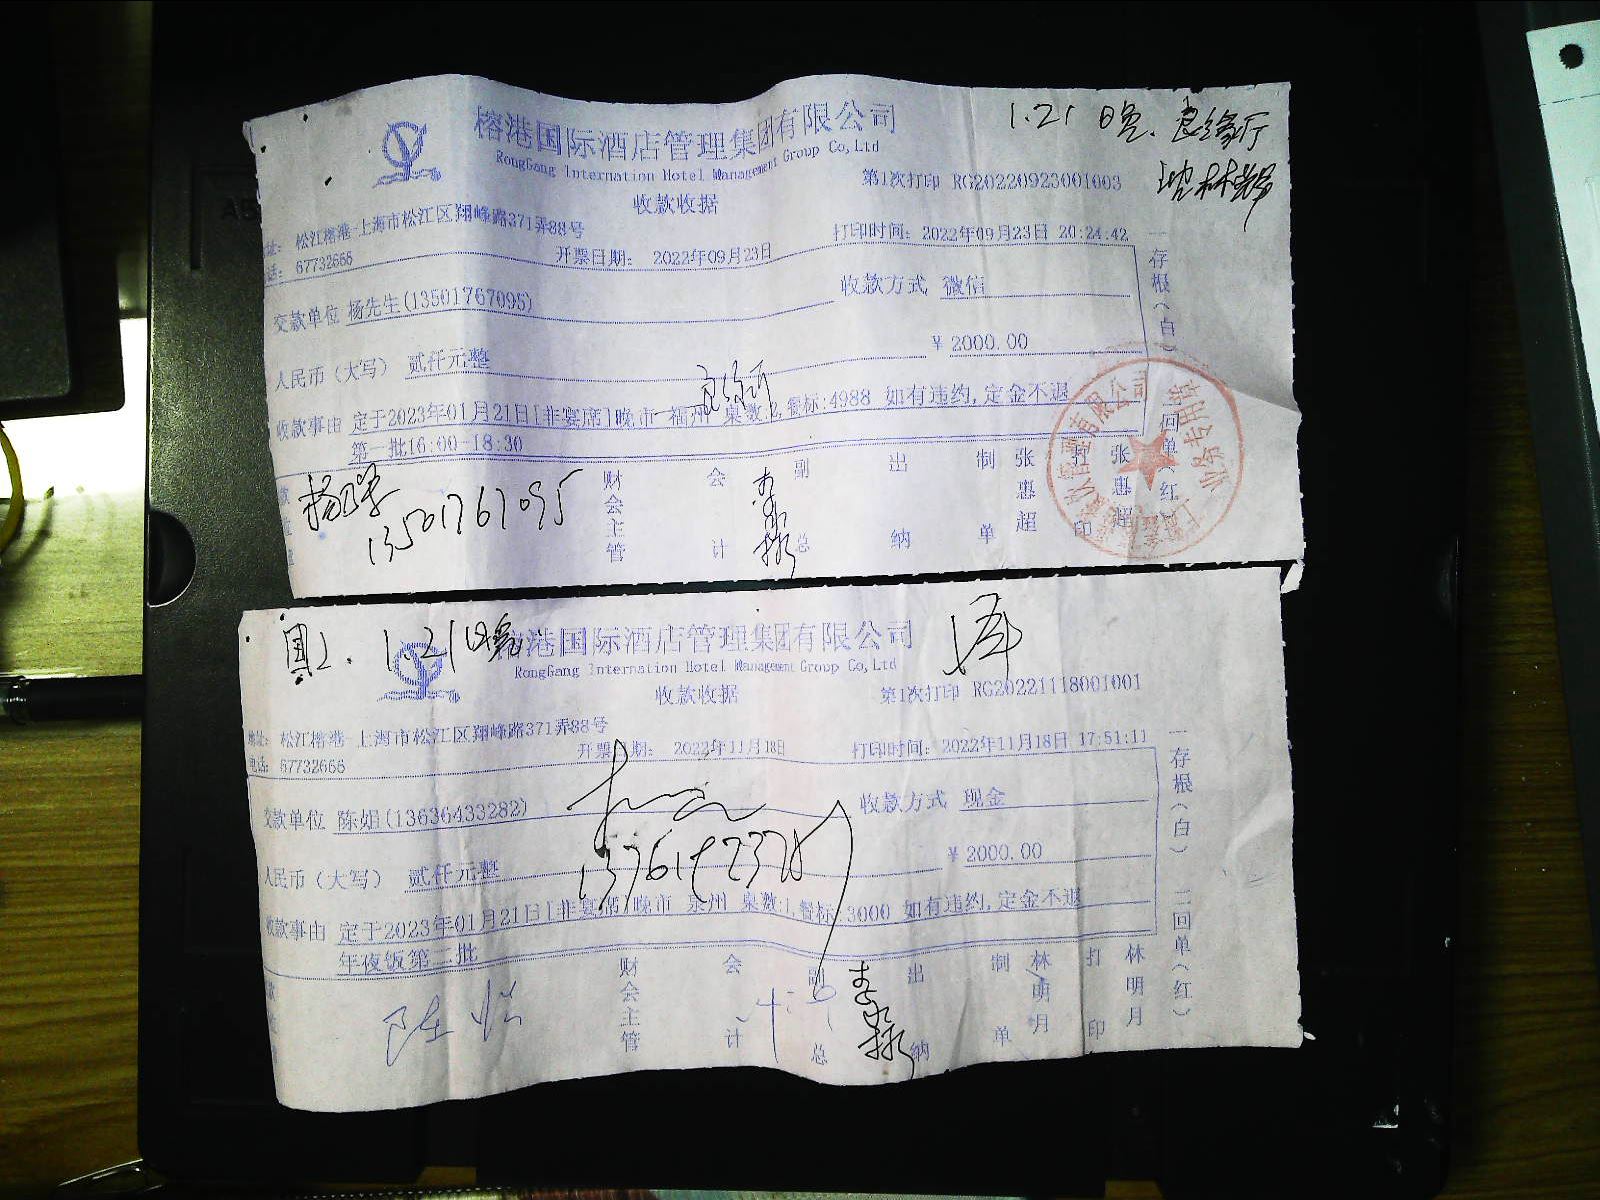 榕港国际酒店管理集团有限公司
RongGang Internation Hotel Management Group Co,Ltd
1.21日晚.良缘厅
收款收据
第1次打印 RG20220923001003
址: 松江榕港-上海市松江区翔峰路371弄88号
话: 67732666
开票日期: 2022年09月23日
打印时间: 2022年09月23日 20:24:42
交款单位 杨先生(13501767095)
收款方式 微信
人民币(大写) 贰仟元整
¥ 2000.00
收款事由 定于2023年01月21日[非宴席]晚市 福州 桌数:2,餐标:4988 如有违约,定金不退
第一批16:00-18:30
13501767095
财会主管
会计
副总
出纳
制单
张惠超
打印
张惠超
一存根(白)
二回单(红)
业务专用章
1.21日晚
榕港国际酒店管理集团有限公司
RongGang Internation Hotel Management Group Co,Ltd
收款收据
第1次打印 RG20221118001001
地址: 松江榕港-上海市松江区翔峰路371弄88号
电话: 67732666
开票日期: 2022年11月18日
打印时间: 2022年11月18日 17:51:11
交款单位 陈娟(13636433282)
收款方式 现金
人民币(大写) 贰仟元整
¥ 2000.00
收款事由 定于2023年01月21日[非宴席]晚市 泉州 桌数:1,餐标:3000 如有违约,定金不退
年夜饭第二批
财会主管
会计
副总
出纳
制单
林明月
打印
林明月
一存根(白)
二回单(红)